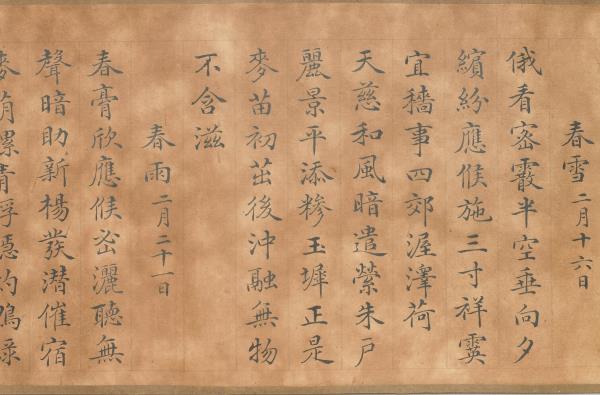 春雪二月十六日
俄看密霰半空垂向夕
繽紛應候施三寸祥霙
宜穡事四郊渥澤荷
天慈和風暗遣縈朱戶
麗景平添糝玉墀正是
麥苗初茁後沖融無物
不含滋
春雨二月二十一日
春膏欣應候密灑聽無
聲暗助新楊發潛催宿
麥萌螺青浮